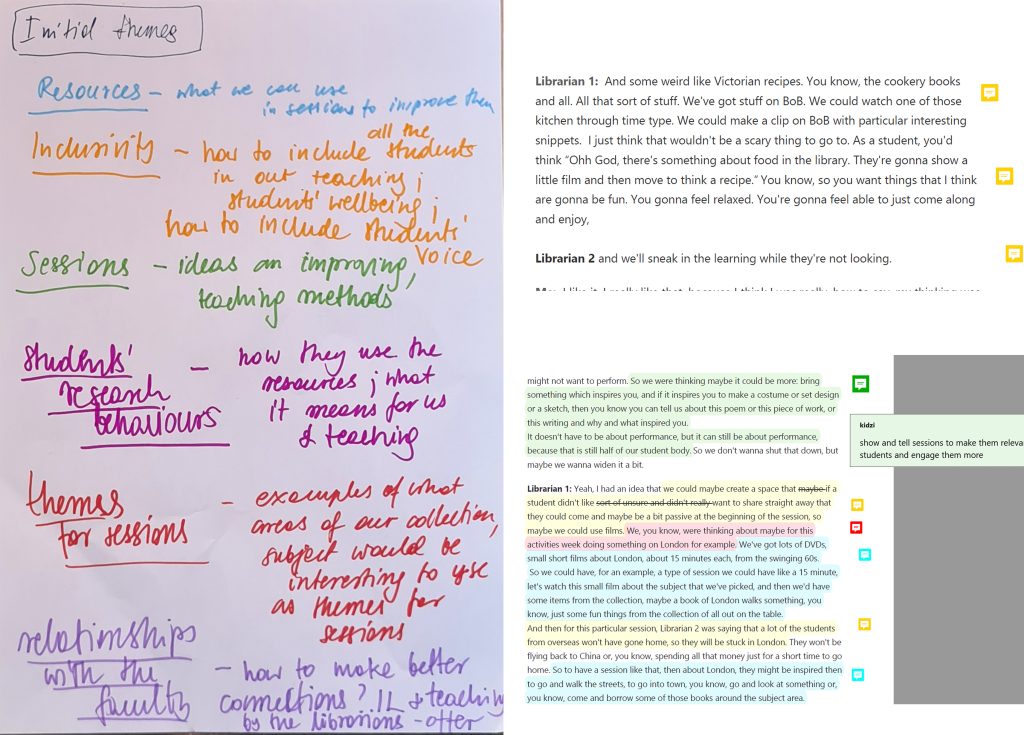 Initial themes
Resources – what we can use
in sessions to improve them
all the
Inclusivity – how to include students
in out teaching;
students' wellbeing;
how to include students'
voice
Sessions – ideas an improving,
teaching methods
Students' – how they use the
research resources; what
behaviours it means for us
& teaching
themes – examples of what
for sessions areas of our collection,
subject would be
interesting to use
as themes for
sessions
relationships
with the – how to make better
faculty connections? IL & teaching
by the librarians - offer
Librarian 1: And some weird like Victorian recipes. You know, the cookery books
and all. All that sort of stuff. We've got stuff on BoB. We could watch one of those
kitchen through time type. We could make a clip on BoB with particular interesting
snippets. I just think that wouldn't be a scary thing to go to. As a student, you'd
think "Ohh God, there's something about food in the library. They're gonna show a
little film and then move to think a recipe." You know, so you want things that I think
are gonna be fun. You gonna feel relaxed. You're gonna feel able to just come along
and enjoy,
Librarian 2 and we'll sneak in the learning while they're not looking.
might not want to perform. So we were thinking maybe it could be more: bring
something which inspires you, and if it inspires you to make a costume or set design
or a sketch, then you know you can tell us about this poem or this piece of work, or
this writing and why and what inspired you.
It doesn't have to be about performance, but it can still be about performance,
because that is still half of our student body. So we don't wanna shut that down, but
maybe we wanna widen it a bit.
kidzi
show and tell sessions to make them releva
students and engage them more
Librarian 1: Yeah, I had an idea that we could maybe create a space that maybe if a
student didn't like sort of unsure and didn't really want to share straight away that
they could come and maybe be a bit passive at the beginning of the session, so
maybe we could use films. We, you know, were thinking about maybe for this
activities week doing something on London for example. We've got lots of DVDs,
small short films about London, about 15 minutes each, from the swinging 60s.
So we could have, for an example, a type of session we could have like a 15 minute,
let's watch this small film about the subject that we've picked, and then we'd have
some items from the collection, maybe a book of London walks something, you
know, just some fun things from the collection of all out on the table.
And then for this particular session, Librarian 2 was saying that a lot of the students
from overseas won't have gone home, so they will be stuck in London. They won't be
flying back to China or, you know, spending all that money just for a short time to go
home. So to have a session like that, then about London, they might be inspired then
to go and walk the streets, to go into town, you know, go and look at something or,
you know, come and borrow some of those books around the subject area.